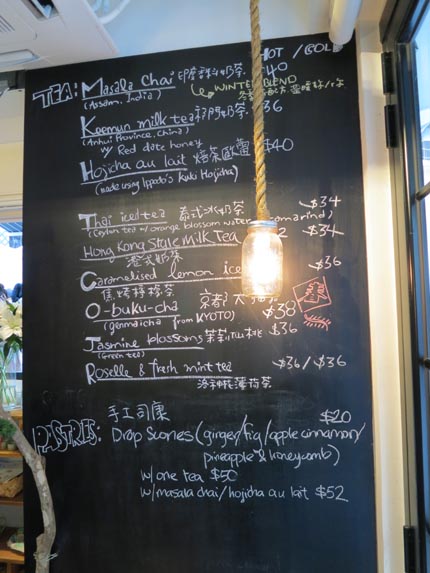 HOT / COLD
TEA: Masala Chai 印度香料奶茶 $40
(Assam, India)
WINTER BLEND
Keemun milk tea 祁門奶茶 $36
(Anhui Province, China)
w/ Red date honey
Hojicha au lait 焙茶歐蕾 $40
(made using Ippodo's Kuki Hojicha)
Thai iced tea 泰式冰奶茶 $34
(Ceylon tea w/ orange blossom water
Hong Kong Style Milk Tea $34
港式奶茶
Caramelised lemon ice $36
焦烤檸檬茶
O-buku-cha 京都大 $38
(genmaicha from KYOTO)
Jasmine blossoms 茉莉仙桃 $36
(Green tea)
Roselle & fresh mint tea $36/$36
洛神花薄荷茶
手工司康 $20
PASTRIES: Drop Scones (ginger/fig/apple cinnamon/
pineapple & honeycomb)
w/ one tea $50
w/ masala chai/hojicha au lait $52